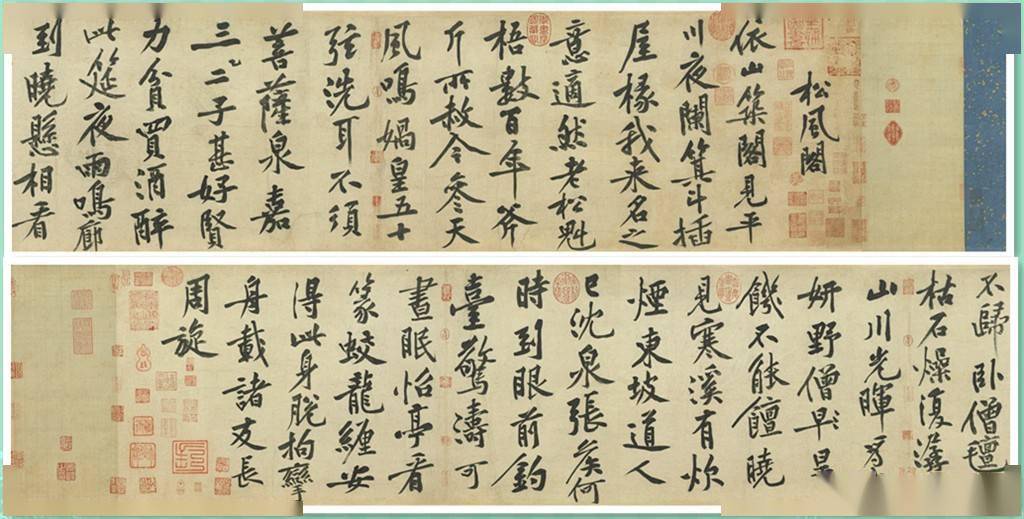 松風閣
依山築閣見平
川夜闌箕斗插
屋椽我来名之
意適然老松魁
梧數百年斧
斤所赦令参天
風鳴媧皇五十
弦洗耳不須
菩薩泉嘉
三二子甚好賢
力貧買酒醉
此筵夜雨鳴廊
到曉懸相看
不歸卧僧氈
枯石燥復潺
山川光暉為
妍野僧早旱
饑不能饘曉
見寒溪有炊
煙東坡道人
已沈泉張侯何
時到眼前釣
臺驚濤可
晝眠怡亭看
篆蛟龍纏安
得此身脫拘攣
舟載諸友長
周旋